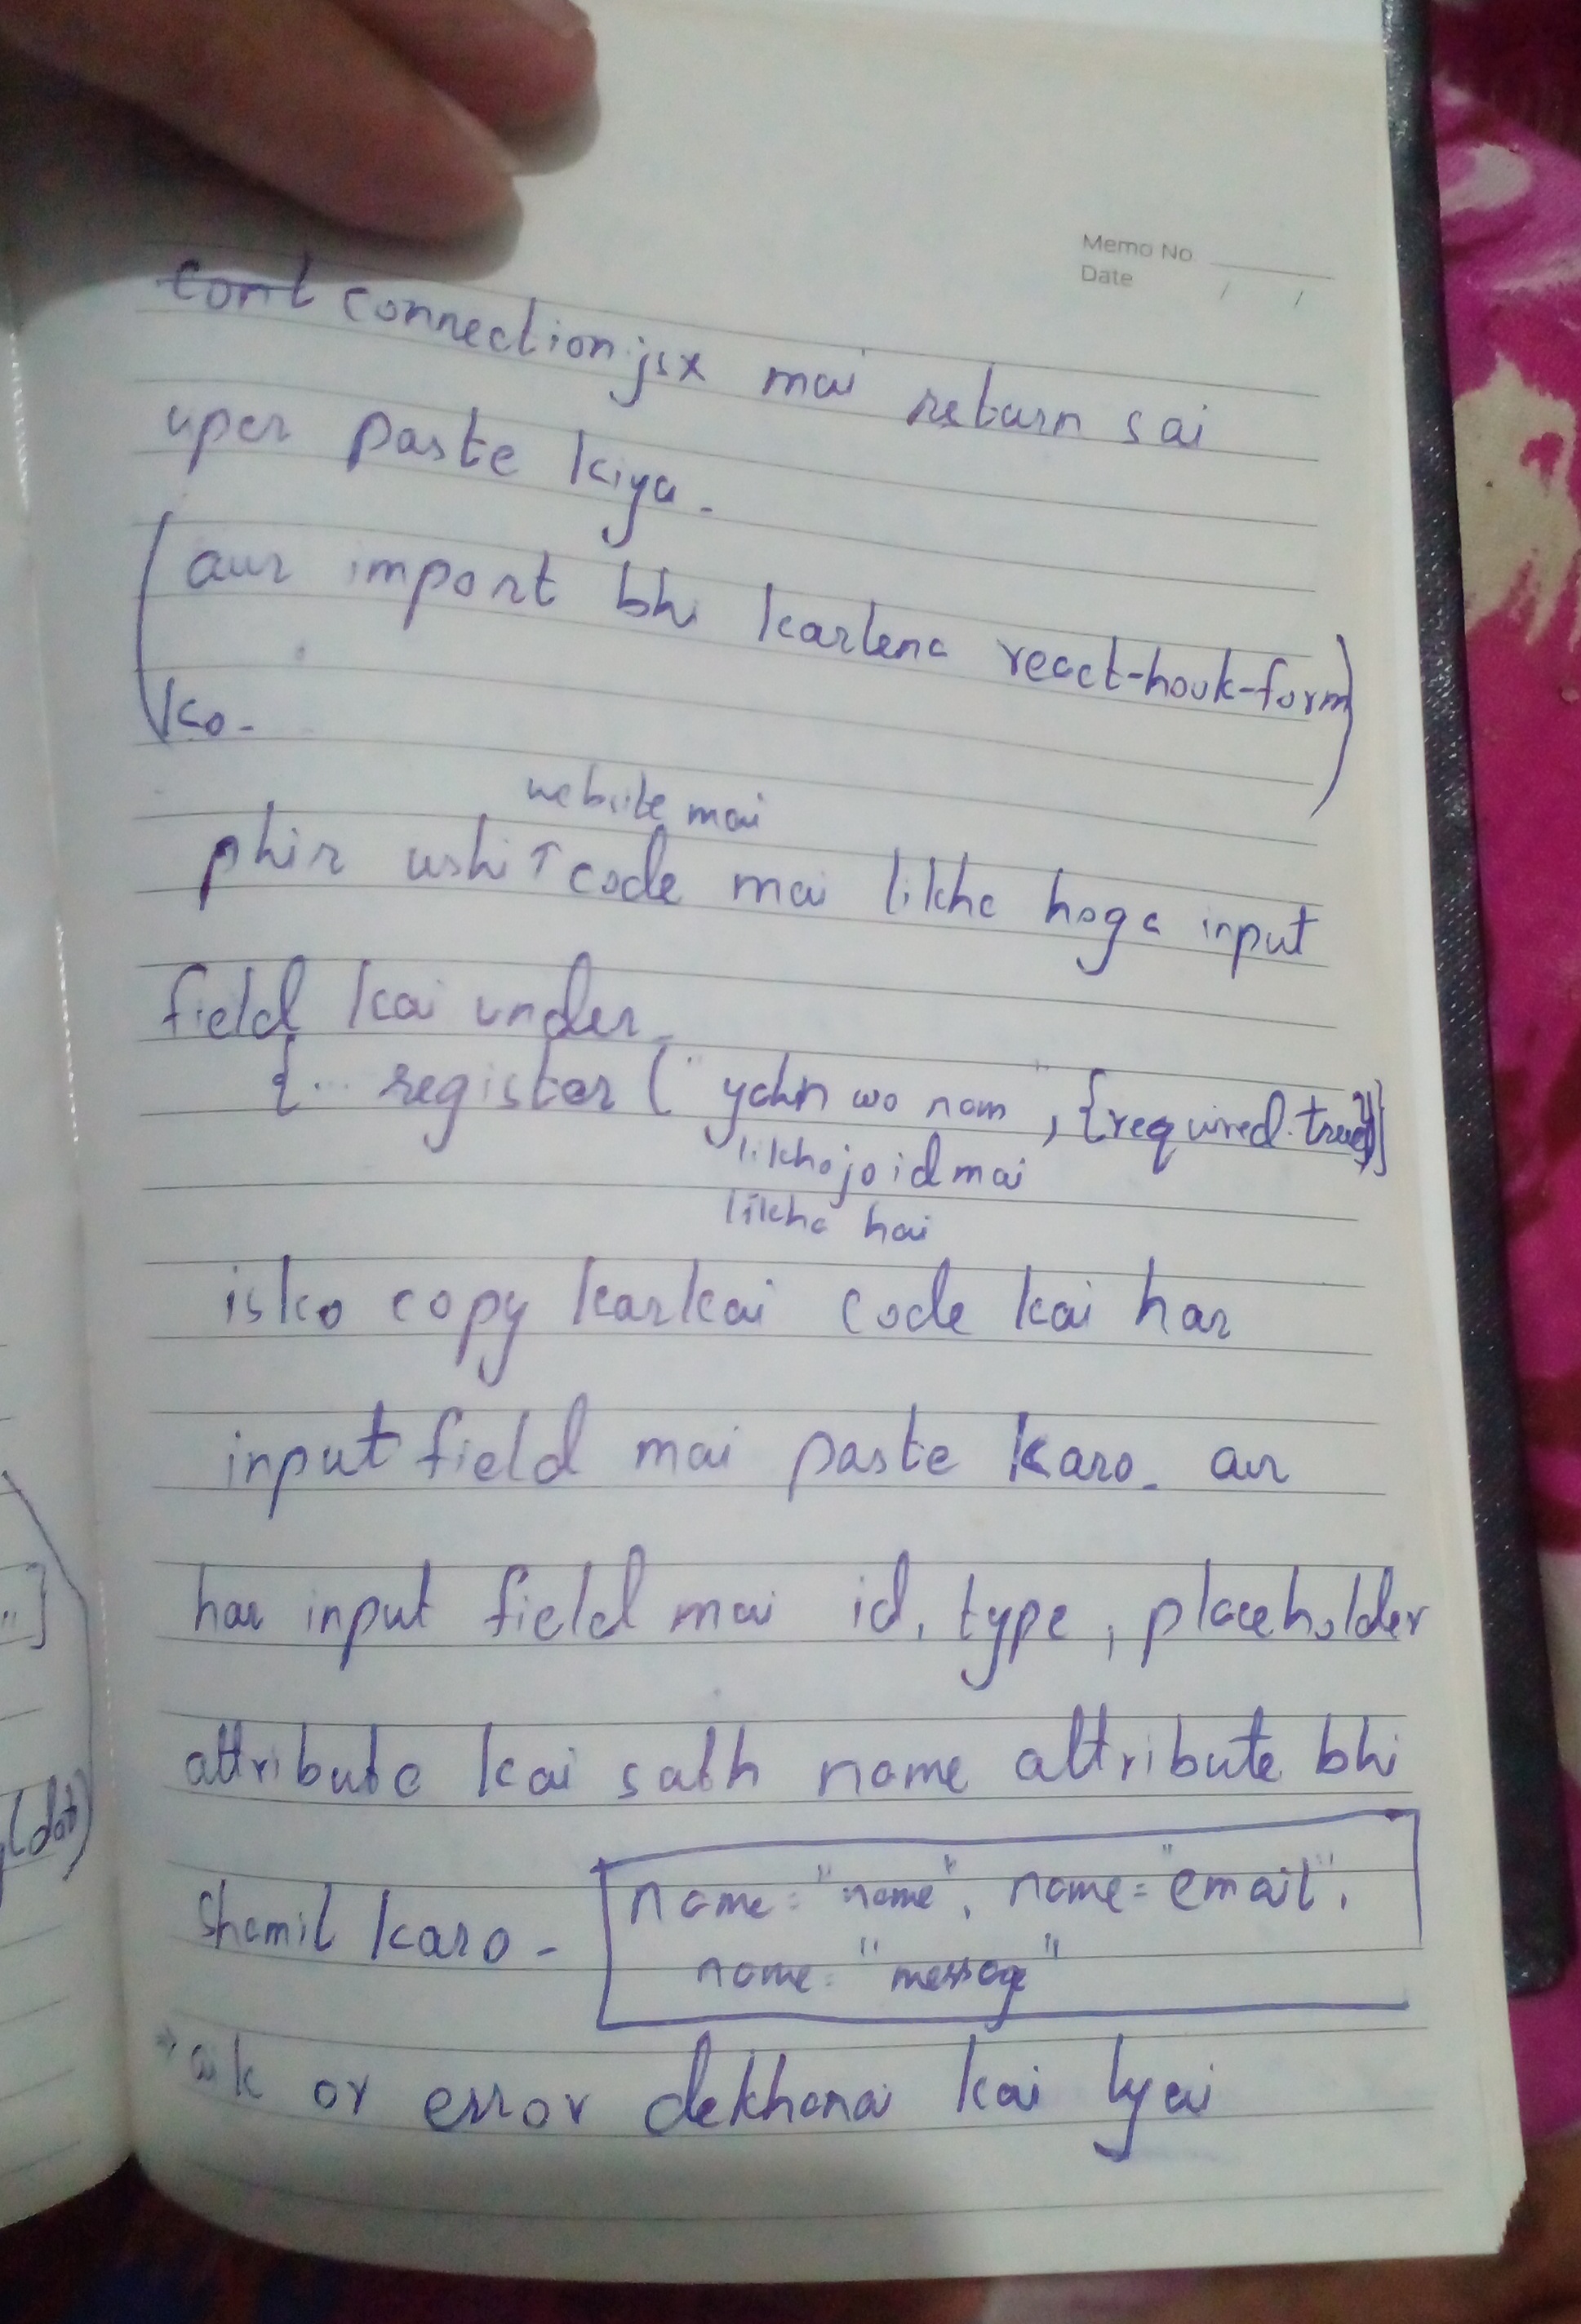 Memo No
Date / /
connection.jsx mai return sai
uper paste kiya.
(aur import bhi karlena react-hook-form)
ko.
website mai
phir ushi ↑ code mai likha hoga input
field kai under
{... register ( " yahn wo nam " , {required:true})}
likho jo id mai
likha hai
isko copy karkai code kai har
input field mai paste karo. aur
har input field mai id, type, placeholder
attribute kai sath name attribute bhi
shamil karo - name="name", name="email",
name="message"
→ aik or error dekhanai kai lyai
..]
(dat)